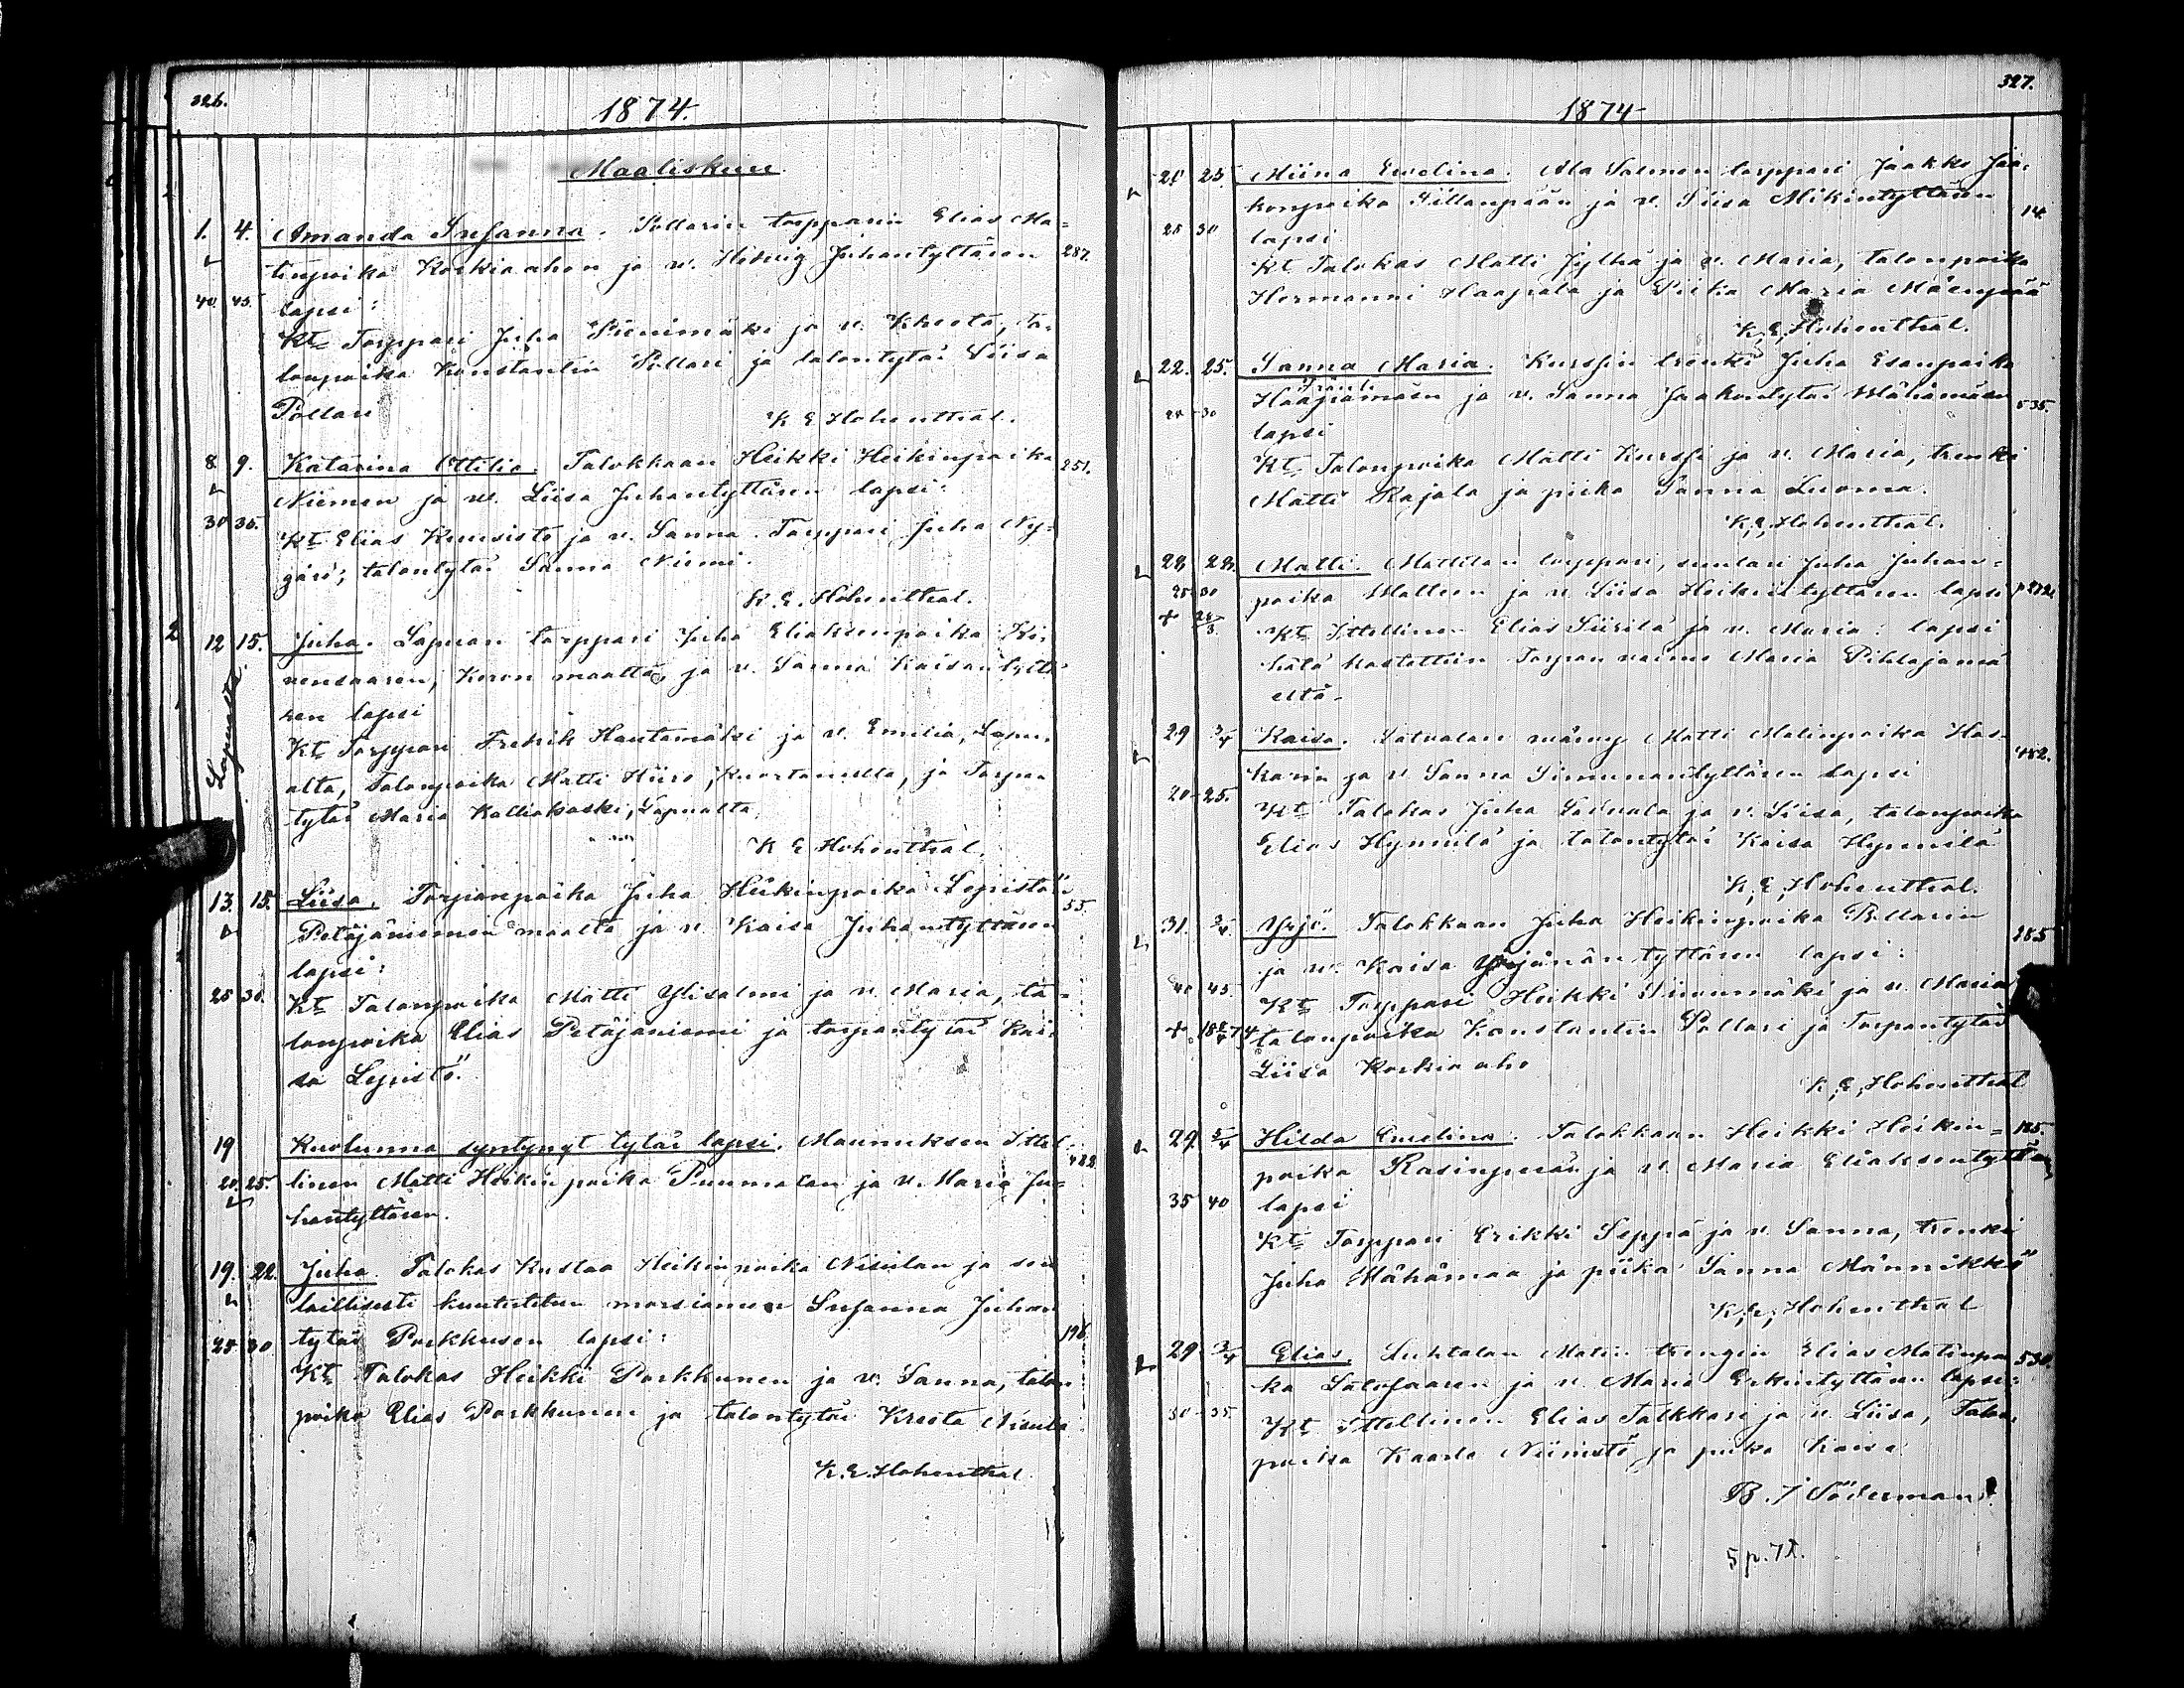 326.
1874.
Maaliskuu
1. 4. Amanda Susanna. Pollarin torpparin Elias Ma=
tinpoika Koskiaahon ja v. Hedvig Juhantyttären 287.
40 45. lapsi:
Kt. Torppari Juha Pienimäki ja v. Kreeta, ta-
lonpoika Konstantin Pollari ja talontytär Liisa
Pollari
K E Hohenthal.
8 9. Katarina Ottilia. Talokkaan Heikki Heikinpoika 251.
Niemen ja v. Liisa Juhantyttären lapsi:
30 35. Kt Elias Kuusisto ja v. Sanna. Torppari Juha Ny=
gård; talontytär Sanna Niemi.
K. E. Hohenthal.
12 15. Juha. Lapuan torppari Juha Eliaksenpoika Ki-
vensaaren, Koron maalta, ja v. Sanna Kaisantyttä
ren lapsi
Lapualta
Kt Torppari Fredrik Hautamäki ja v. Emilia, Lapu-
alta, Talonpoika Matti Hiiro, Kuortaneella, ja Torpan
tytär Maria Kalliokoski, Lapualta.
K E Hohenthal.
13. 15. Liisa. Torpanpoika Juha Heikinpoika Lepistö 55.
Petäjäniemen maalta ja v. Kaisa Juhantyttären
lapsi:
25 30. Kt Talonpoika Matti Ylisalmi ja v. Maria, ta-
lonpoika Elias Petäjäniemi ja torpantytär Kai-
sa Lepistö.
19 Kuolunna syntynyt tytär lapsi. Maunuksen Ittel
20. 25. linen Matti Heikinpoika Punmalan ja v. Maria Ju=
hantyttären.
19. 22. Juha. Talokas Kustaa Heikinpoika Nisulan ja sen
laillisesti kuulutetun morsiamen Susanna Juhan
25 30 tytär Porkkusen lapsi: 196
Kt Talokas Heikki Porkkunen ja v. Sanna, talon
poika Elias Porkkunen ja talontytär Kreeta Nisula
K. E. Hohenthal.
327.
1874
25. Miina Evelina. Ala Salmen torppari Jaakko Jaa-
konpoika Pillanpään ja v. Liisa Mikintyttären 14.
25 30 lapsi
Kt Talokas Matti Jylhä ja v. Maria, talonpoika
Hermanni Haapala ja Piika Maria Mäenpää
K. E. Hohenthal.
22. 25. Sanna Maria. Kurssin trenki Juha Esanpoika
Haapamäen ja v. Sanna Jaakontytär Mähämäen 535.
30 lapsi
Kt Talonpoika Matti Kurssi ja v. Maria, trenki
Matti Rajala ja piika Sanna Luoma.
K. E. Hohenthal.
28 28. Matti. Mattilan torppari, suutari Juha Juhan=
25 30 poika Mallein ja v. Liisa Heikintyttären lapsi
Kt Ittellinen Elias Siirilä ja v. Maria: lapsi
hätä kastettiin Torpan vaimo Maria Pihlajamä
eltä.
29 3/4 Kaisa. Latvalan vävyn Matti Matinpoika Has-
karin ja v Sanna Simunantyttären lapsi 482.
20 25. Kt Talokas Juha Latvala ja v. Liisa, talonpoika
Elias Hynnilä ja talontytär Kaisa Hynnilä
K. E. Hohenthal.
31. Yrjö. Talokkaan Juha Heikinpoika Pollarin 285
ja v. Kaisa Yrjänäntyttären lapsi:
40 45. Kt Torppari Heikki Pienimäki ja v. Maria
talonpoika Konstantin Pollari ja Torpantytär
Liisa Koskiaaho
K. E. Hohenthal
29. 5/4 Hilda Evelina. Talokkaan Heikki Heikin= 105.
poika Rasinperän ja v. Maria Eliaksentyttären
35 40 lapsi
Kt Torppari Erikki Seppä ja v. Sanna, trenki
Juha Mähämaa ja piika Sanna Männikkö
K. E. Hohenthal
29. 3/4 Elias. Luhtalan Matin trengin Elias Matinpoi 530.
ka Latosaaren ja v. Maria Erkintyttären lapsi:
30 35. Kt Ittellinen Elias Talkkari ja v. Liisa, Talon
poika Kaarle Niinistö ja piika Kaisa
B. J Söderman
5 p. 7 t.